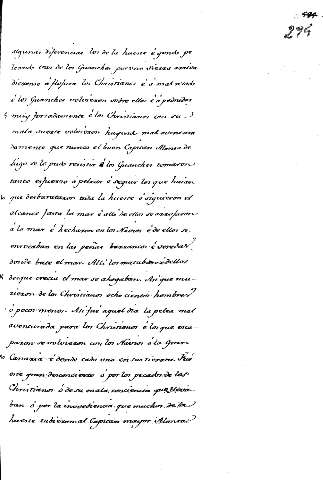 275
algunas diferencias los de la hueste é yendo pe
leando tras de los Guanches por una Sierra arriba
dieronse á floxura los Christianos é á mal recado
é los Guanches volvieron sobre ellos é á pedradas
muy fortadamente é los Christianos con su
mala suerte volvieron huyendo mal aventura
damente que nunca el buen Capitan Alonso de
lugo se lo pudo resistir é los Guanches tomaron
tanto esfuerzo á pelear é seguir los que huian
que desbarataron toda la hueste é siguieron el
alcance fasta la mar é allí de ellos se acogieron
á la mar é hecharon en los Navios é de ellos se
enriscaban en las peñas barrancos é veredas
donde bate el mar. Allí los mataban é dellos
desque crecia el mar se ahogaban. Asi que mu
rieron de los Christianos ocho cientos hombres
ó poco menos. Asi fué aquel dia la pelea mal
aventurada para los Christianos é los que esca
paron se volvieron con los Navios á la Gran
Canaria é dende cada uno en sus tierras. Fue
este gran desconcierto ó por los pecados de los
Christianos ó de su mala conciencia que lleva
ban ó por la inobediencia que muchos de la
hueste tubieron al Capitan mayor Alonso